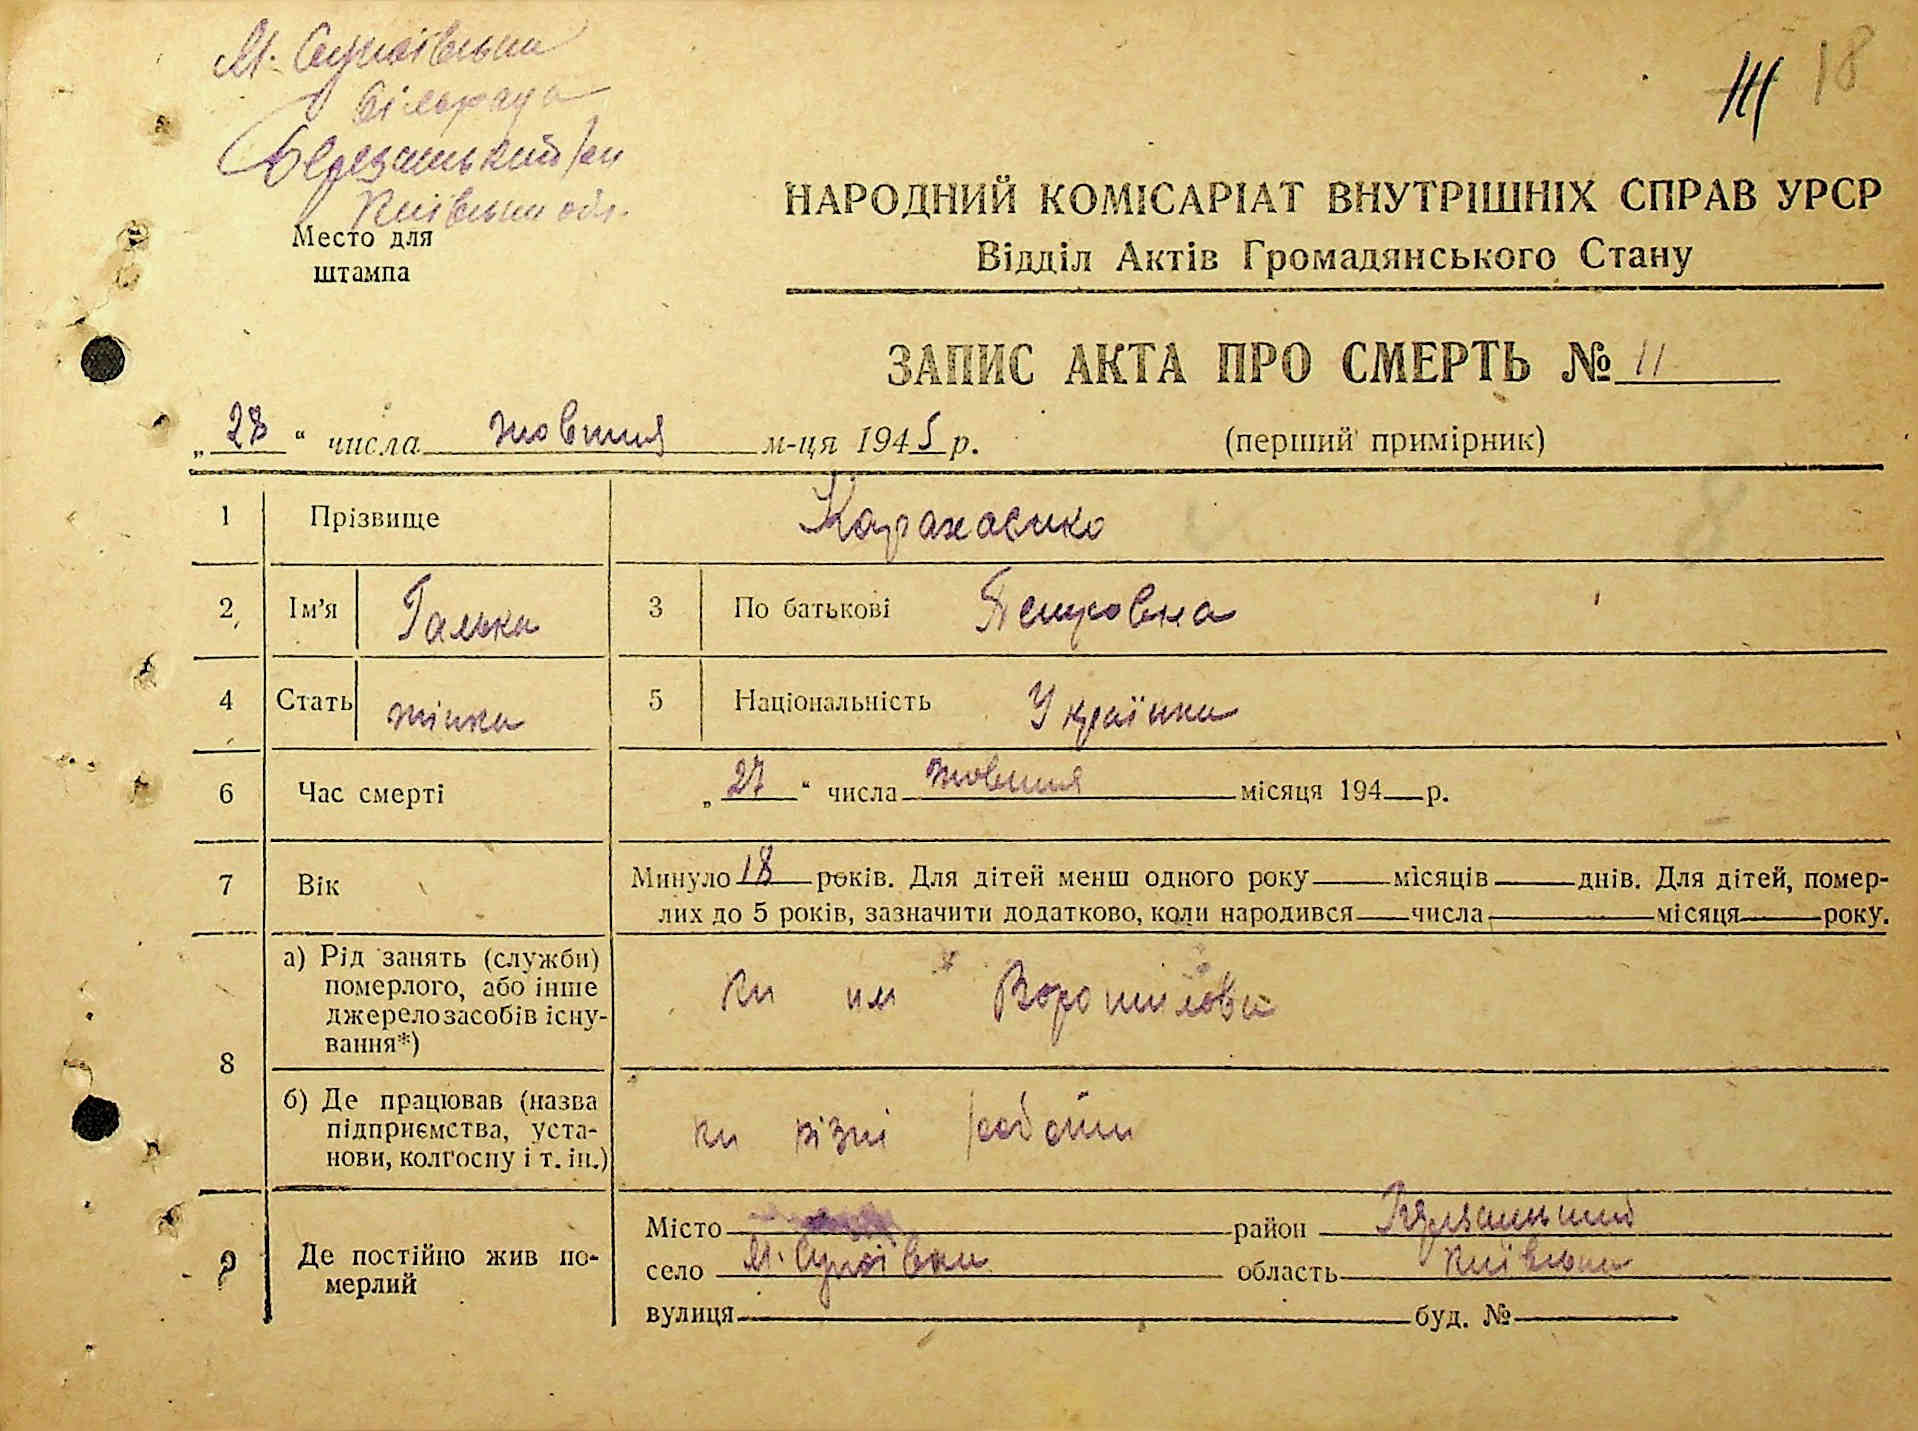 М. Супоївська
сільрада
Березанський р-н
Київська обл.
Место для
штампа
18
НАРОДНИЙ КОМІСАРІАТ ВНУТРІШНІХ СПРАВ УРСР
Відділ Актів Громадянського Стану
ЗАПИС АКТА ПРО СМЕРТЬ № 11
„28“ числа жовтня м-ця 1945 р. (перший примірник)
1 Прізвище
2 Ім’я Галька 3 По батькові Петровна
4 Стать жінка 5 Національність Українка
6 Час смерті „27“ числа жовтня місяця 194 р.
7 Вік Минуло 18 років. Для дітей менш одного року місяців днів. Для дітей, помер-
лих до 5 років, зазначити додатково, коли народився числа місяця року.
8 а) Рід занять (служби)
померлого, або інше
джерело засобів існу-
вання*)
к-п им Ворошилова
б) Де працював (назва
підприємства, уста-
нови, колгоспу і т. ін.)
різні работи
9 Де постійно жив по-
мерлий
Місто район Березанський
село М. Супоївка область Київська
вулиця буд. №